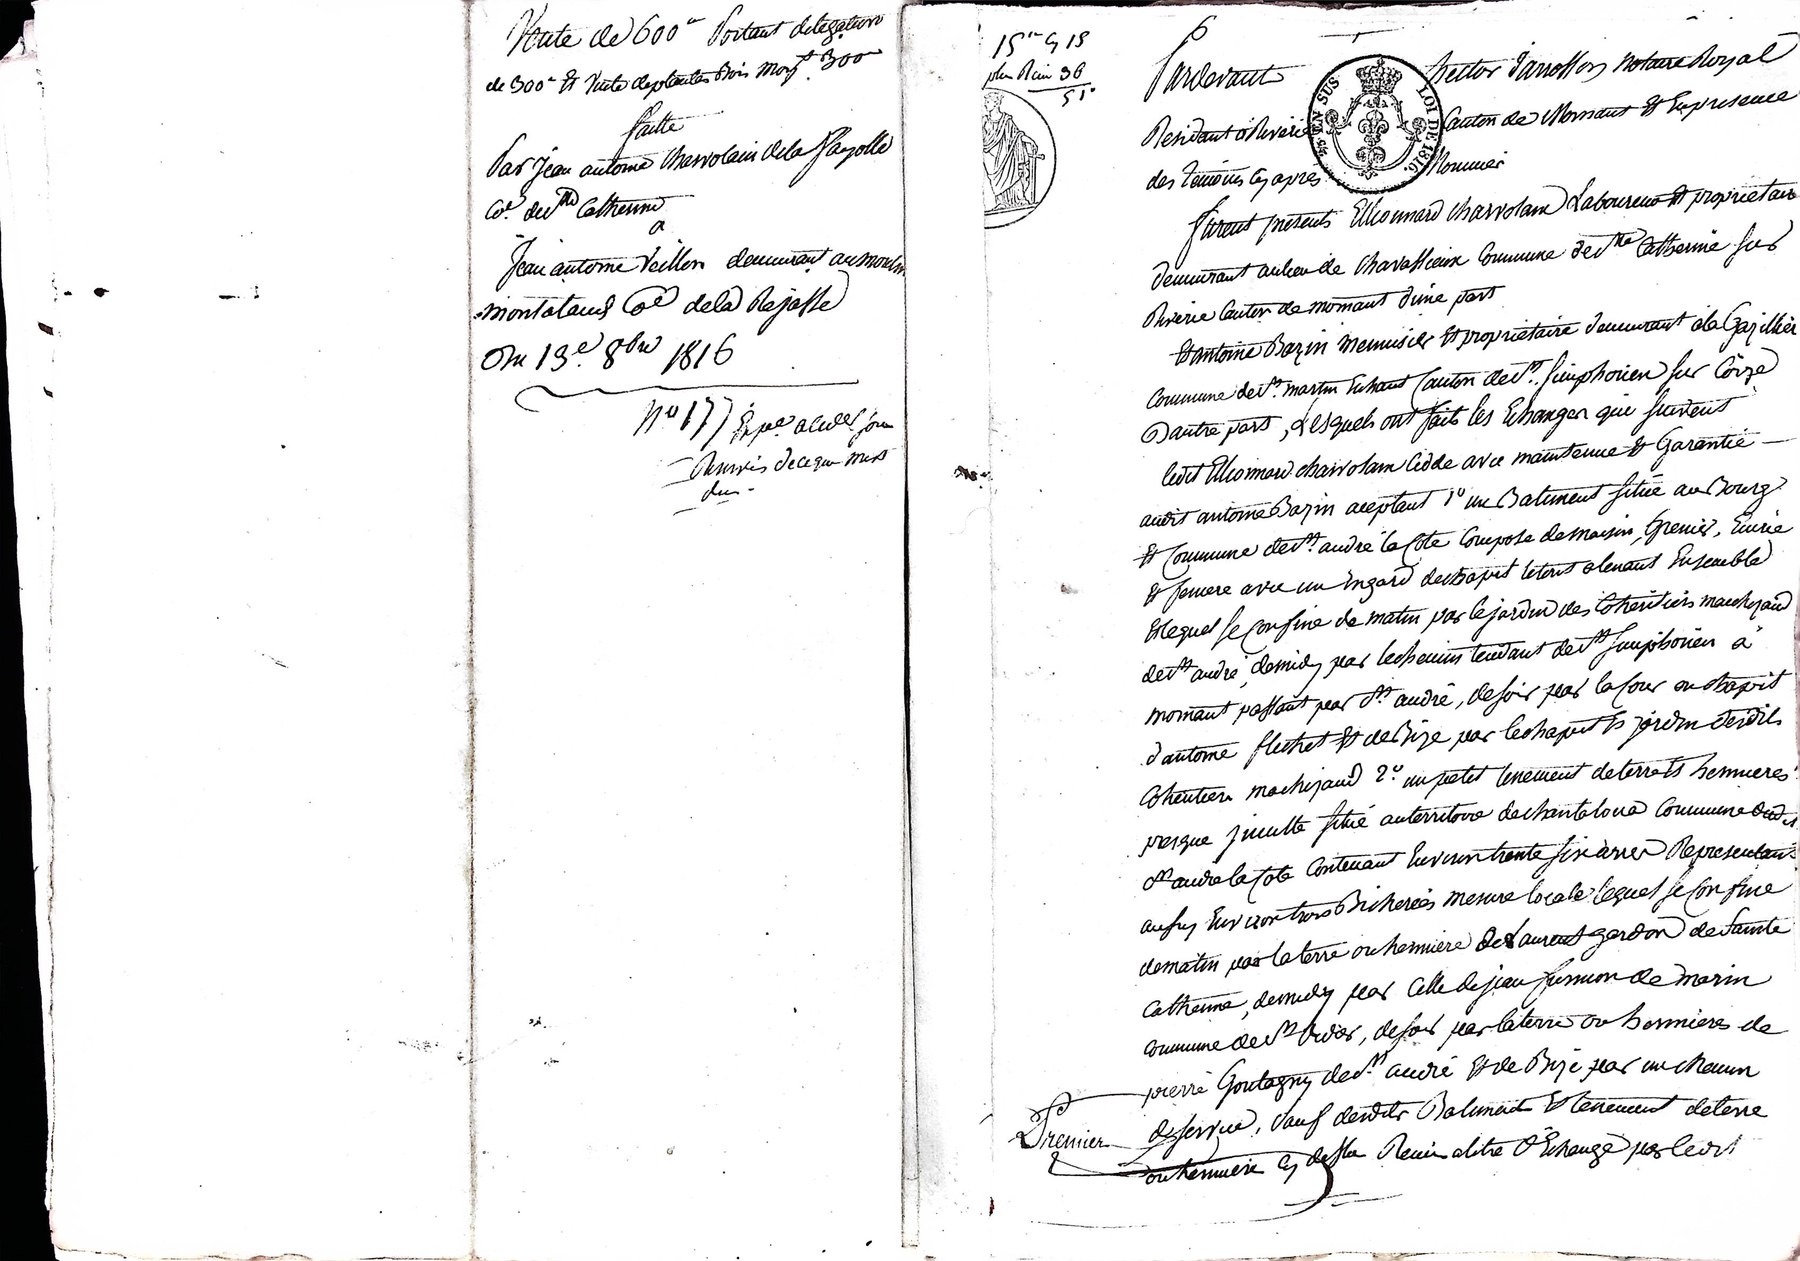 Vente de 600" Portant delegation
de 300" Et Vente de plantes Bois moyt 300"
faitte
Par Jean antoine Charvolain de la Fayolle
Co.e de Ste Catherine
a
Jean antoine Veillon demeurant au moulin
Co.e de la Rajasse
Du 13.e 8bre 1816
N.o 177
15" C 15
plus 36
51"
Pardevant hector Notaire Royal
Residant a Riverie Canton de Mornant Et En presence
des temoins Cy apres
furent presents Ellionnard Charvolain Laboureur Et proprietaire
demeurant au lieu de Chavassieux Commune de Ste Catherine sur
Riverie Canton de mornant d'une part
Et antoine Bazin menuisier Et proprietaire demeurant a la
Commune de St martin En haut Canton de St. simphorien sur Coize
D'autre part, Lesquels ont fait les Echanges que suivent
ledit Ellionnard charvolain Cedde avec maintenue Et Garantie —
audit antoine Bazin aceptant 1o un Batiment situé au Bourg
Et Commune de St. andre la Cote Composé de maison, Grenier, Ecurie
Et feniere avec un Engard de chapit letout alenant Ensemble
Et lequel se Confine de matin par le jardin des Coheritiers
de St andré, de midy par le chemin tendant de St simphorien à
mornant passant par St andré, de soir par la Cour ou chapit
d'antoine flechet Et de Bize par le chapit Et jardin desdits
Coheritiers 2o un petit tenement de terre Et hermieres
presque jnculte situé au territoire de chanteloua Commune dudit
St andre la Cote Contenant Environ trente six ares Representant
aussy Environ trois Bicherées mesure locale lequel se Confine
de matin par la terre ou hermiere de Laurent gerdon de Sainte
Catherine, de midy par Celle de jean de morin
Commune de St Didier, de soir par la terre ou hermieres de
pierre Goutagny de St andré Et de Bize par un chemin
de service, Sauf desdits Batiment Et tenement de terre
ou hermiere Cy dessus a titre d'Echange par ledit
Premier
EN SUS
LOI DE 1816.